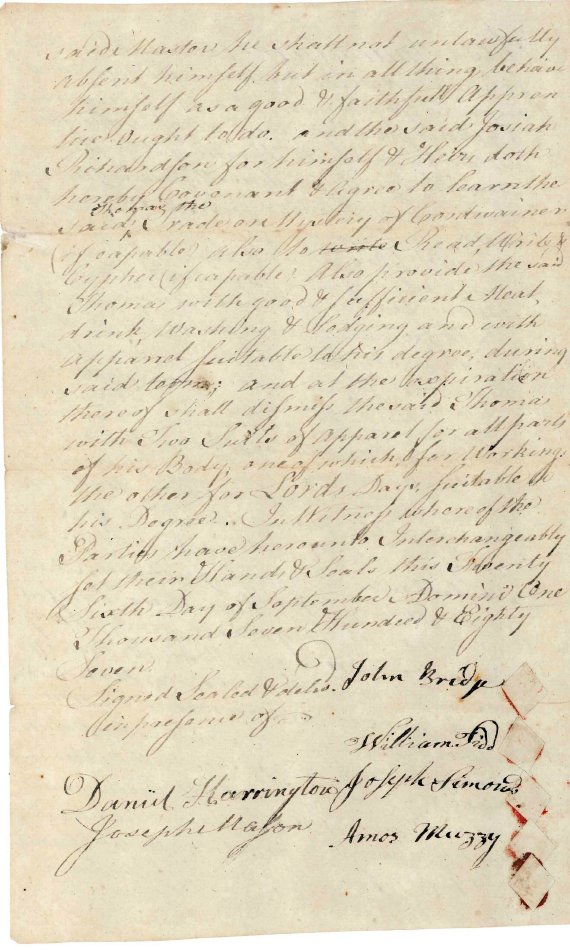 said Master he shall not unlawfully
absent himself but in all thing behave
himself as a good & faithfull Appren
tice ought to do. and the said Josiah
Richardson for himself & Heirs doth
hereby Covenant & agree to learn the
Thomas the
said Trade or Mystery of Cordwainer
(if capable) also to write Read, Write &
Cypher (if capable) Also provide the said
Thomas with good & sufficient Meat,
drink Washing & Lodging and with
apparel suitable to his degree, during
said term; and at the expiration
thereof shall dismiss the said Thomas
with Two Suits of apparel for all parts
of his Body, one of which for Working
the other for Lords Days, suitable to
his Degree. In Witness whereof the
Parties have hereunto Interchangeably
set their Hands & Seals this Twenty
Sixth Day of September Domini One
Thousand Seven Hundred & Eighty
Seven
Signed Sealed & deliv. John Bridge
in presence of
William
Daniel Harrington Joseph Simonds
Joseph Mason Amos Muzzy